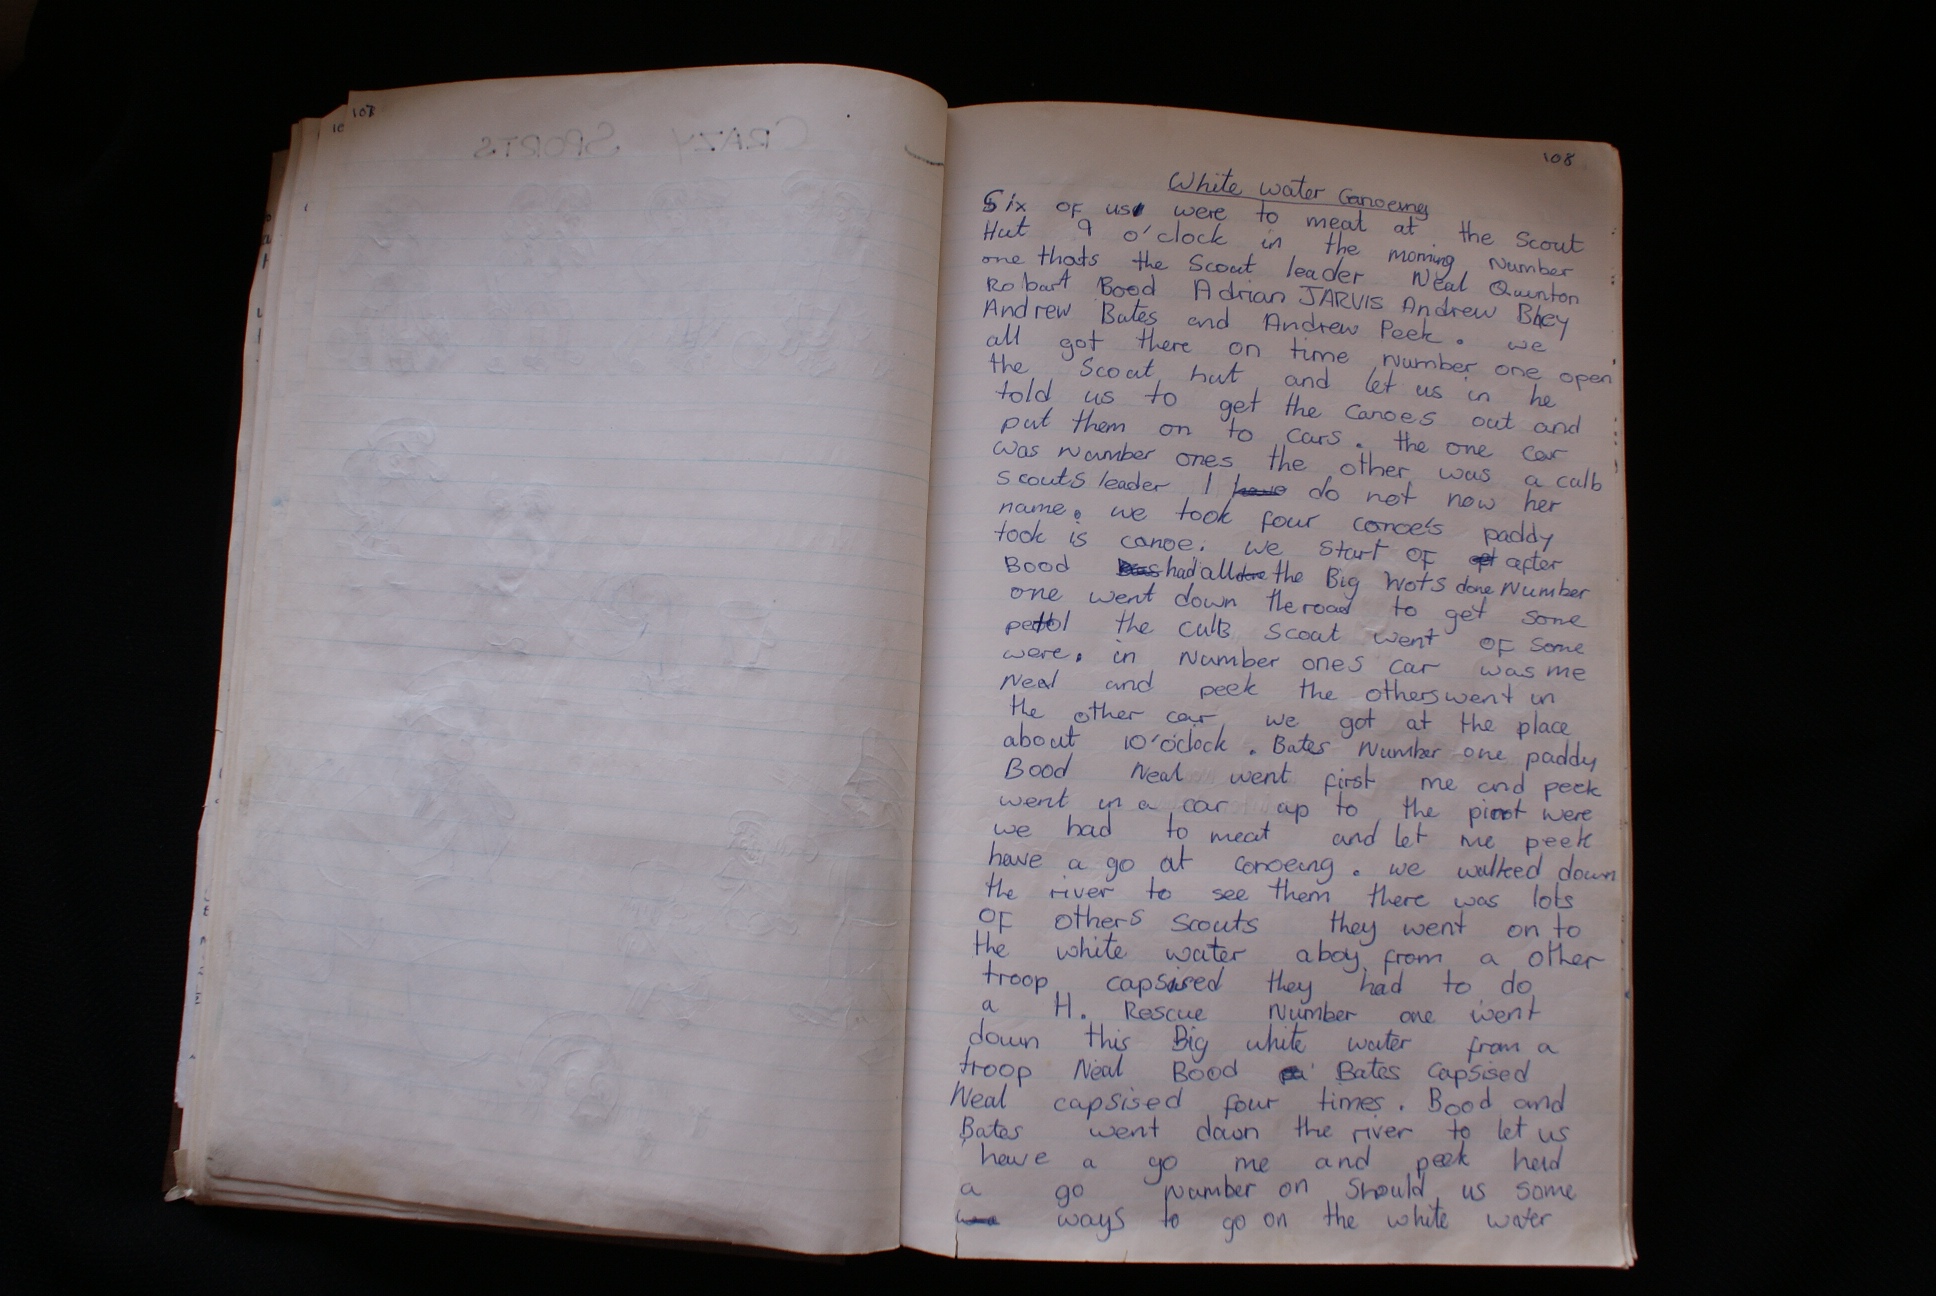 107
10
CRAZY SPORTS
108
White water Canoeing
Six of us were to meat at the Scout
Hut 9 o'clock in the morning Number
one thats the Scout leader Neal Quinton
Robart Bood Adrian JARVIS Andrew
Andrew Bates and Andrew Peek. we
all got there on time number one open
the Scout hut and let us in he
told us to get the canoes out and
put them on to cars. the one car
was number ones the other was a calb
scouts leader I have do not now her
name. we took four canoe's paddy
took is canoe. we start of after
Bood had all the Big Nots done Number
one went down the road to get some
pettol the culb scout went of some
were. in Number ones car was me
Neal and peek the others went in
the other car, we got at the place
about 10'oclock. Bates Number one paddy
Bood Neal went first me and peek
went in a car up to the were
we had to meat and let me peek
have a go at canoeing. we walked down
the river to see them there was lots
OF others Scouts they went on to
the white water a boy from a other
troop capsised they had to do
a H. Rescue Number one went
down this Big white water from a
troop Neal Bood Bates capsised
Neal capsised four times. Bood and
Bates went down the river to let us
have a go me and peek held
a go number on Should us some
ways to go on the white water